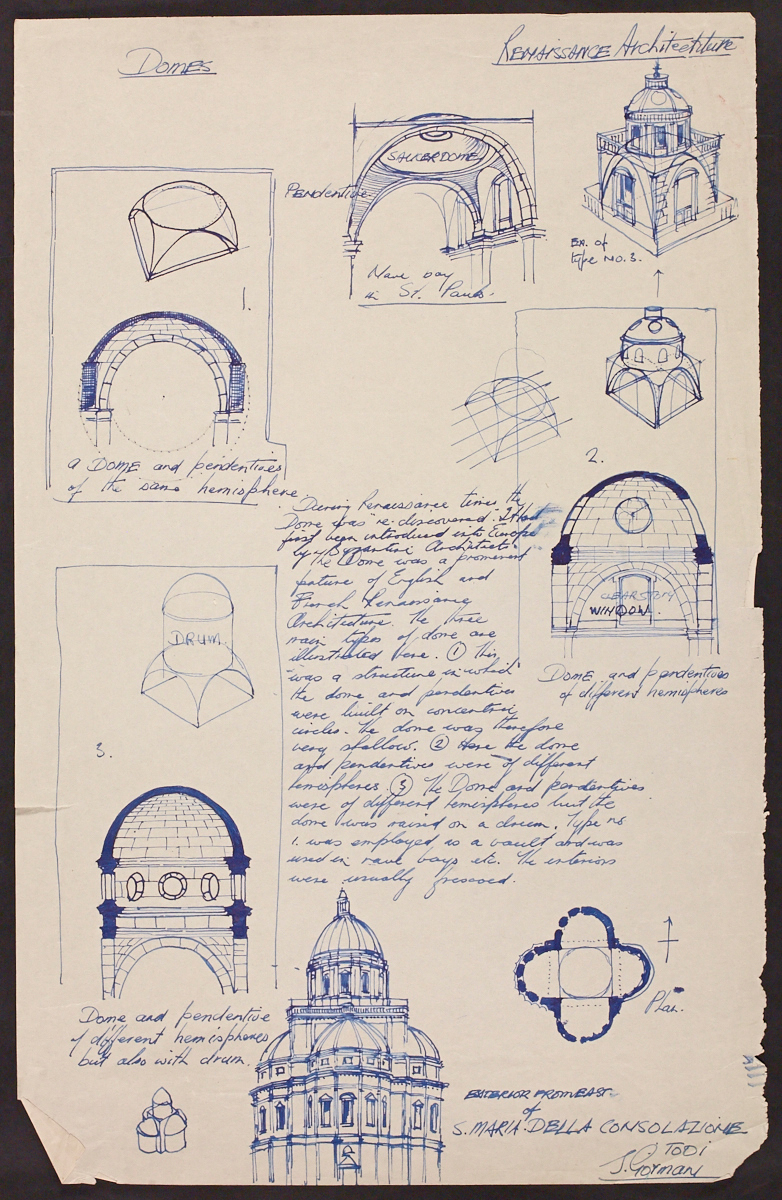 DOMES
RENAISSANCE Architectture
SAUCER DOME
PENdentive
Nave bay
in St. Pauls.
Ex. of
type NO.3.
1.
a DOME and pendentives
of the same hemisphere.
2.
CLEARSTORY
WINDOW.
DOME and pendentives
of different hemispheres
During Renaissance times the
Dome was "re-discovered". It had
first been introduced into Europe
by Byzantine Architects.
The Dome was a prominent
feature of English and
French Renaissance
Architecture. The three
main types of dome are
illustrated here. ① This
was a structure in which
the dome and pendentives
were built on concentric
circles. The dome was therefore
very shallow. ② Here the dome
and pendentives were of different
hemispheres. ③ The Dome and pendentives
were of different hemispheres but the
dome was raised on a drum. Type no
1. was employed as a vault and was
used in nave bays etc. The interiors
were usually frescoed.
DRUM
3.
Dome and pendentive
of different hemispheres
but also with drum.
Plan.
EXTERIOR FROM EAST
of
S. MARIA DELLA CONSOLAZIONE
TODI
J. Gorman